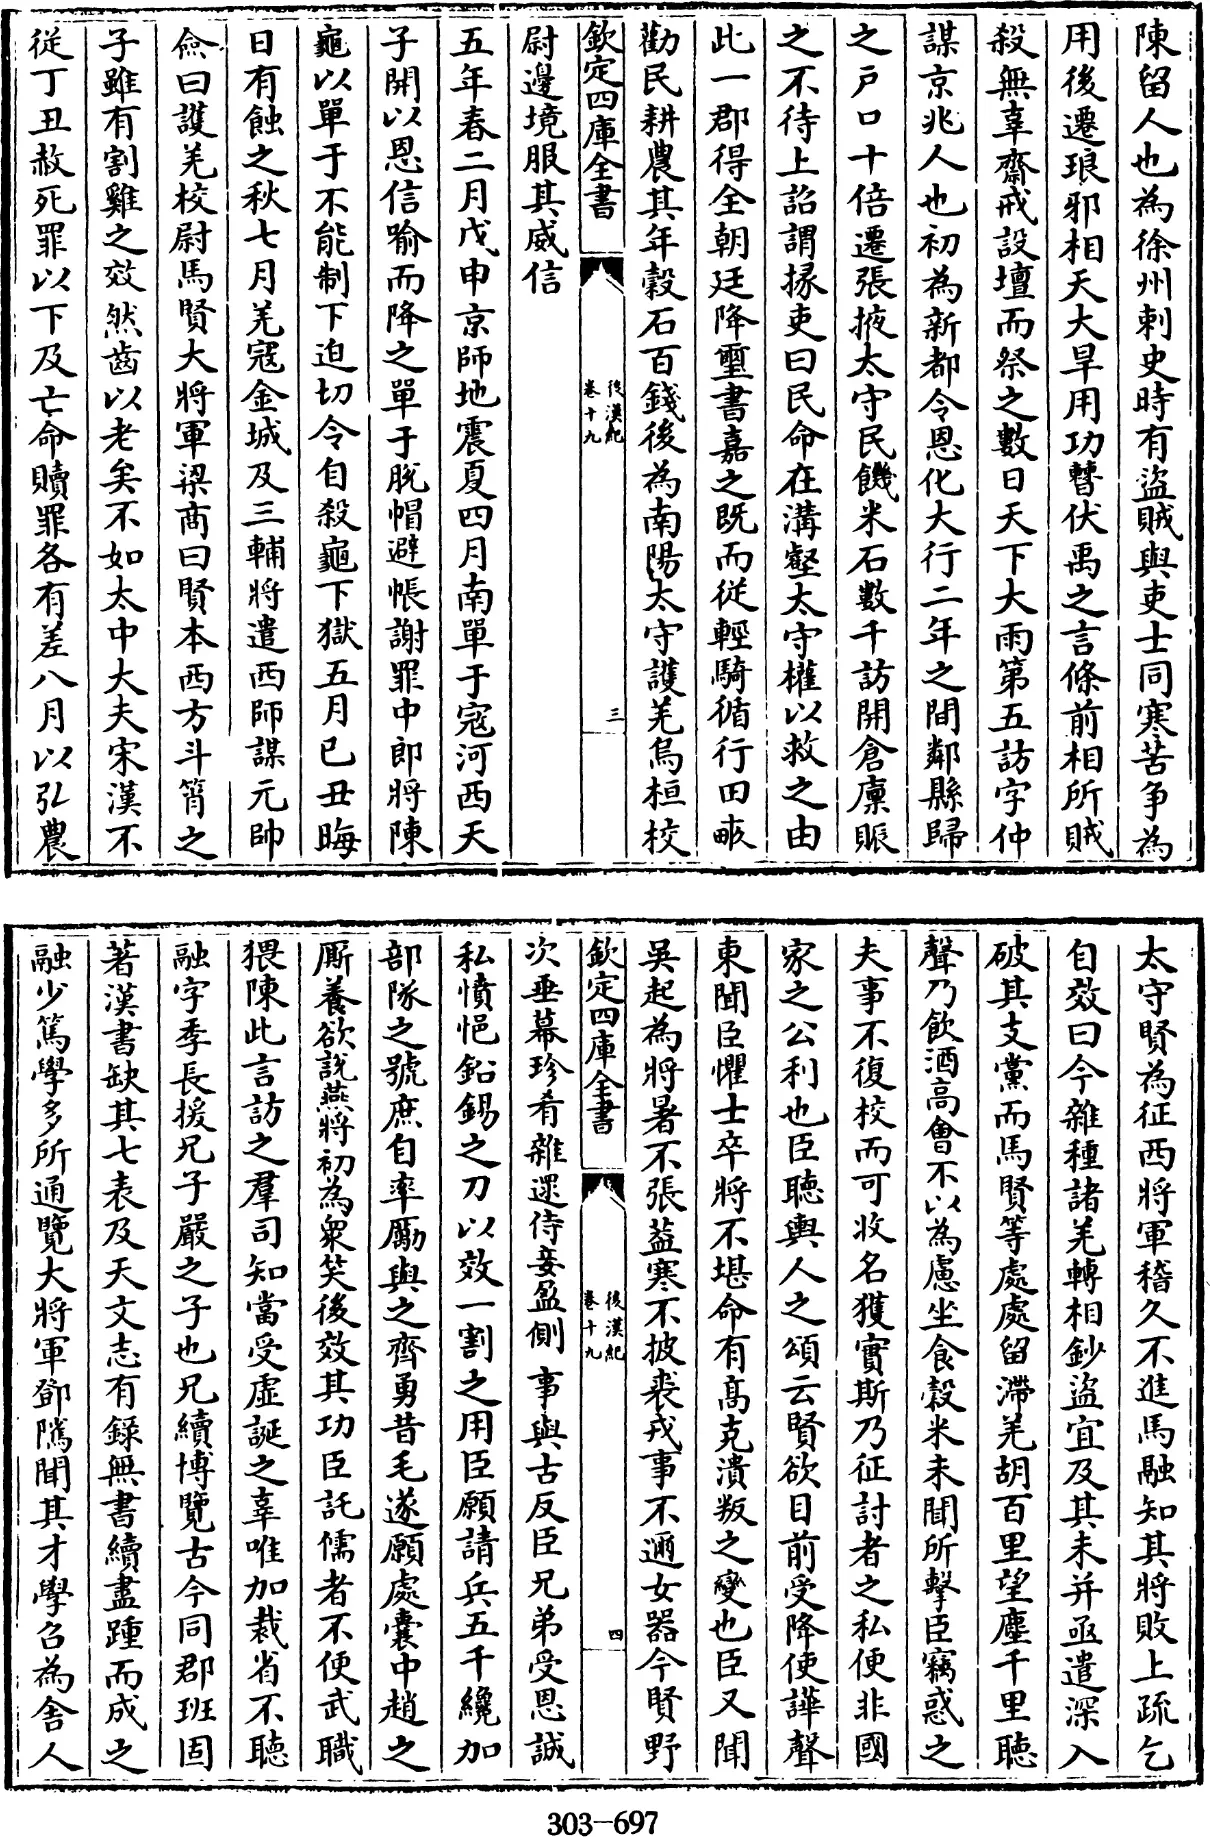 陳留人也為徐州刺史時有盜賊與吏士同寒苦争為
用後遷琅邪相天大旱用功瞽伏禹之言條前相所賊
殺無辜齋戒設壇而祭之數日天下大雨第五訪字仲
謀京兆人也初為新都令恩化大行二年之間鄰縣歸
之戸口十倍遷張掖太守民饑米石數千訪開倉廪賑
之不待上詔謂掾吏曰民命在溝壑太守權以救之由
此一郡得全朝廷降璽書嘉之既而從輕騎循行田畝
勸民耕農其年穀石百錢後為南陽太守護羌烏桓校
欽定四庫全書
後漢紀
卷十九
三
尉邊境服其威信
五年春二月戊申京師地震夏四月南單于寇河西天
子開以恩信喻而降之單于脫帽避帳謝罪中郎將陳
龜以單于不能制下迫切令自殺龜下獄五月已丑晦
日有蝕之秋七月羌寇金城及三輔將遣西師謀元帥
僉曰護羌校尉馬賢大將軍梁商曰賢本西方斗筲之
子雖有割雞之效然齒以老矣不如太中大夫宋漢不
從丁丑赦死罪以下及亡命贖罪各有差八月以弘農
太守賢為征西將軍稽久不進馬融知其將敗上疏乞
自效曰今雜種諸羌轉相鈔盜宜及其未并亟遣深入
破其支黨而馬賢等處處留滯羌胡百里望塵千里聽
聲乃飲酒高會不以為慮坐食穀米未聞所擊臣竊惑之
夫事不復校而可收名獲實斯乃征討者之私便非國
家之公利也臣聽輿人之頌云賢欲目前受降使譁聲
東聞臣懼士卒將不堪命有髙克潰叛之變也臣又聞
吳起為將暑不張葢寒不披裘戎事不邇女器今賢野
欽定四庫全書
後漢紀
卷十九
四
次垂幕珍肴雜遝侍妾盈側事與古反臣兄弟受恩誠
私憤悒鉛錫之刀以效一割之用臣願請兵五千纔加
部隊之號庶自率厲與之齊勇昔毛遂願處囊中趙之
厮養欲説燕將初為衆笑後效其功臣託儒者不便武職
猥陳此言訪之羣司知當受虚誕之辜唯加裁省不聽
融字季長援兄子嚴之子也兄續博覽古今同郡班固
著漢書缺其七表及天文志有録無書續盡踵而成之
融少篤學多所通覽大將軍鄧隲聞其才學召為舎人
303-697